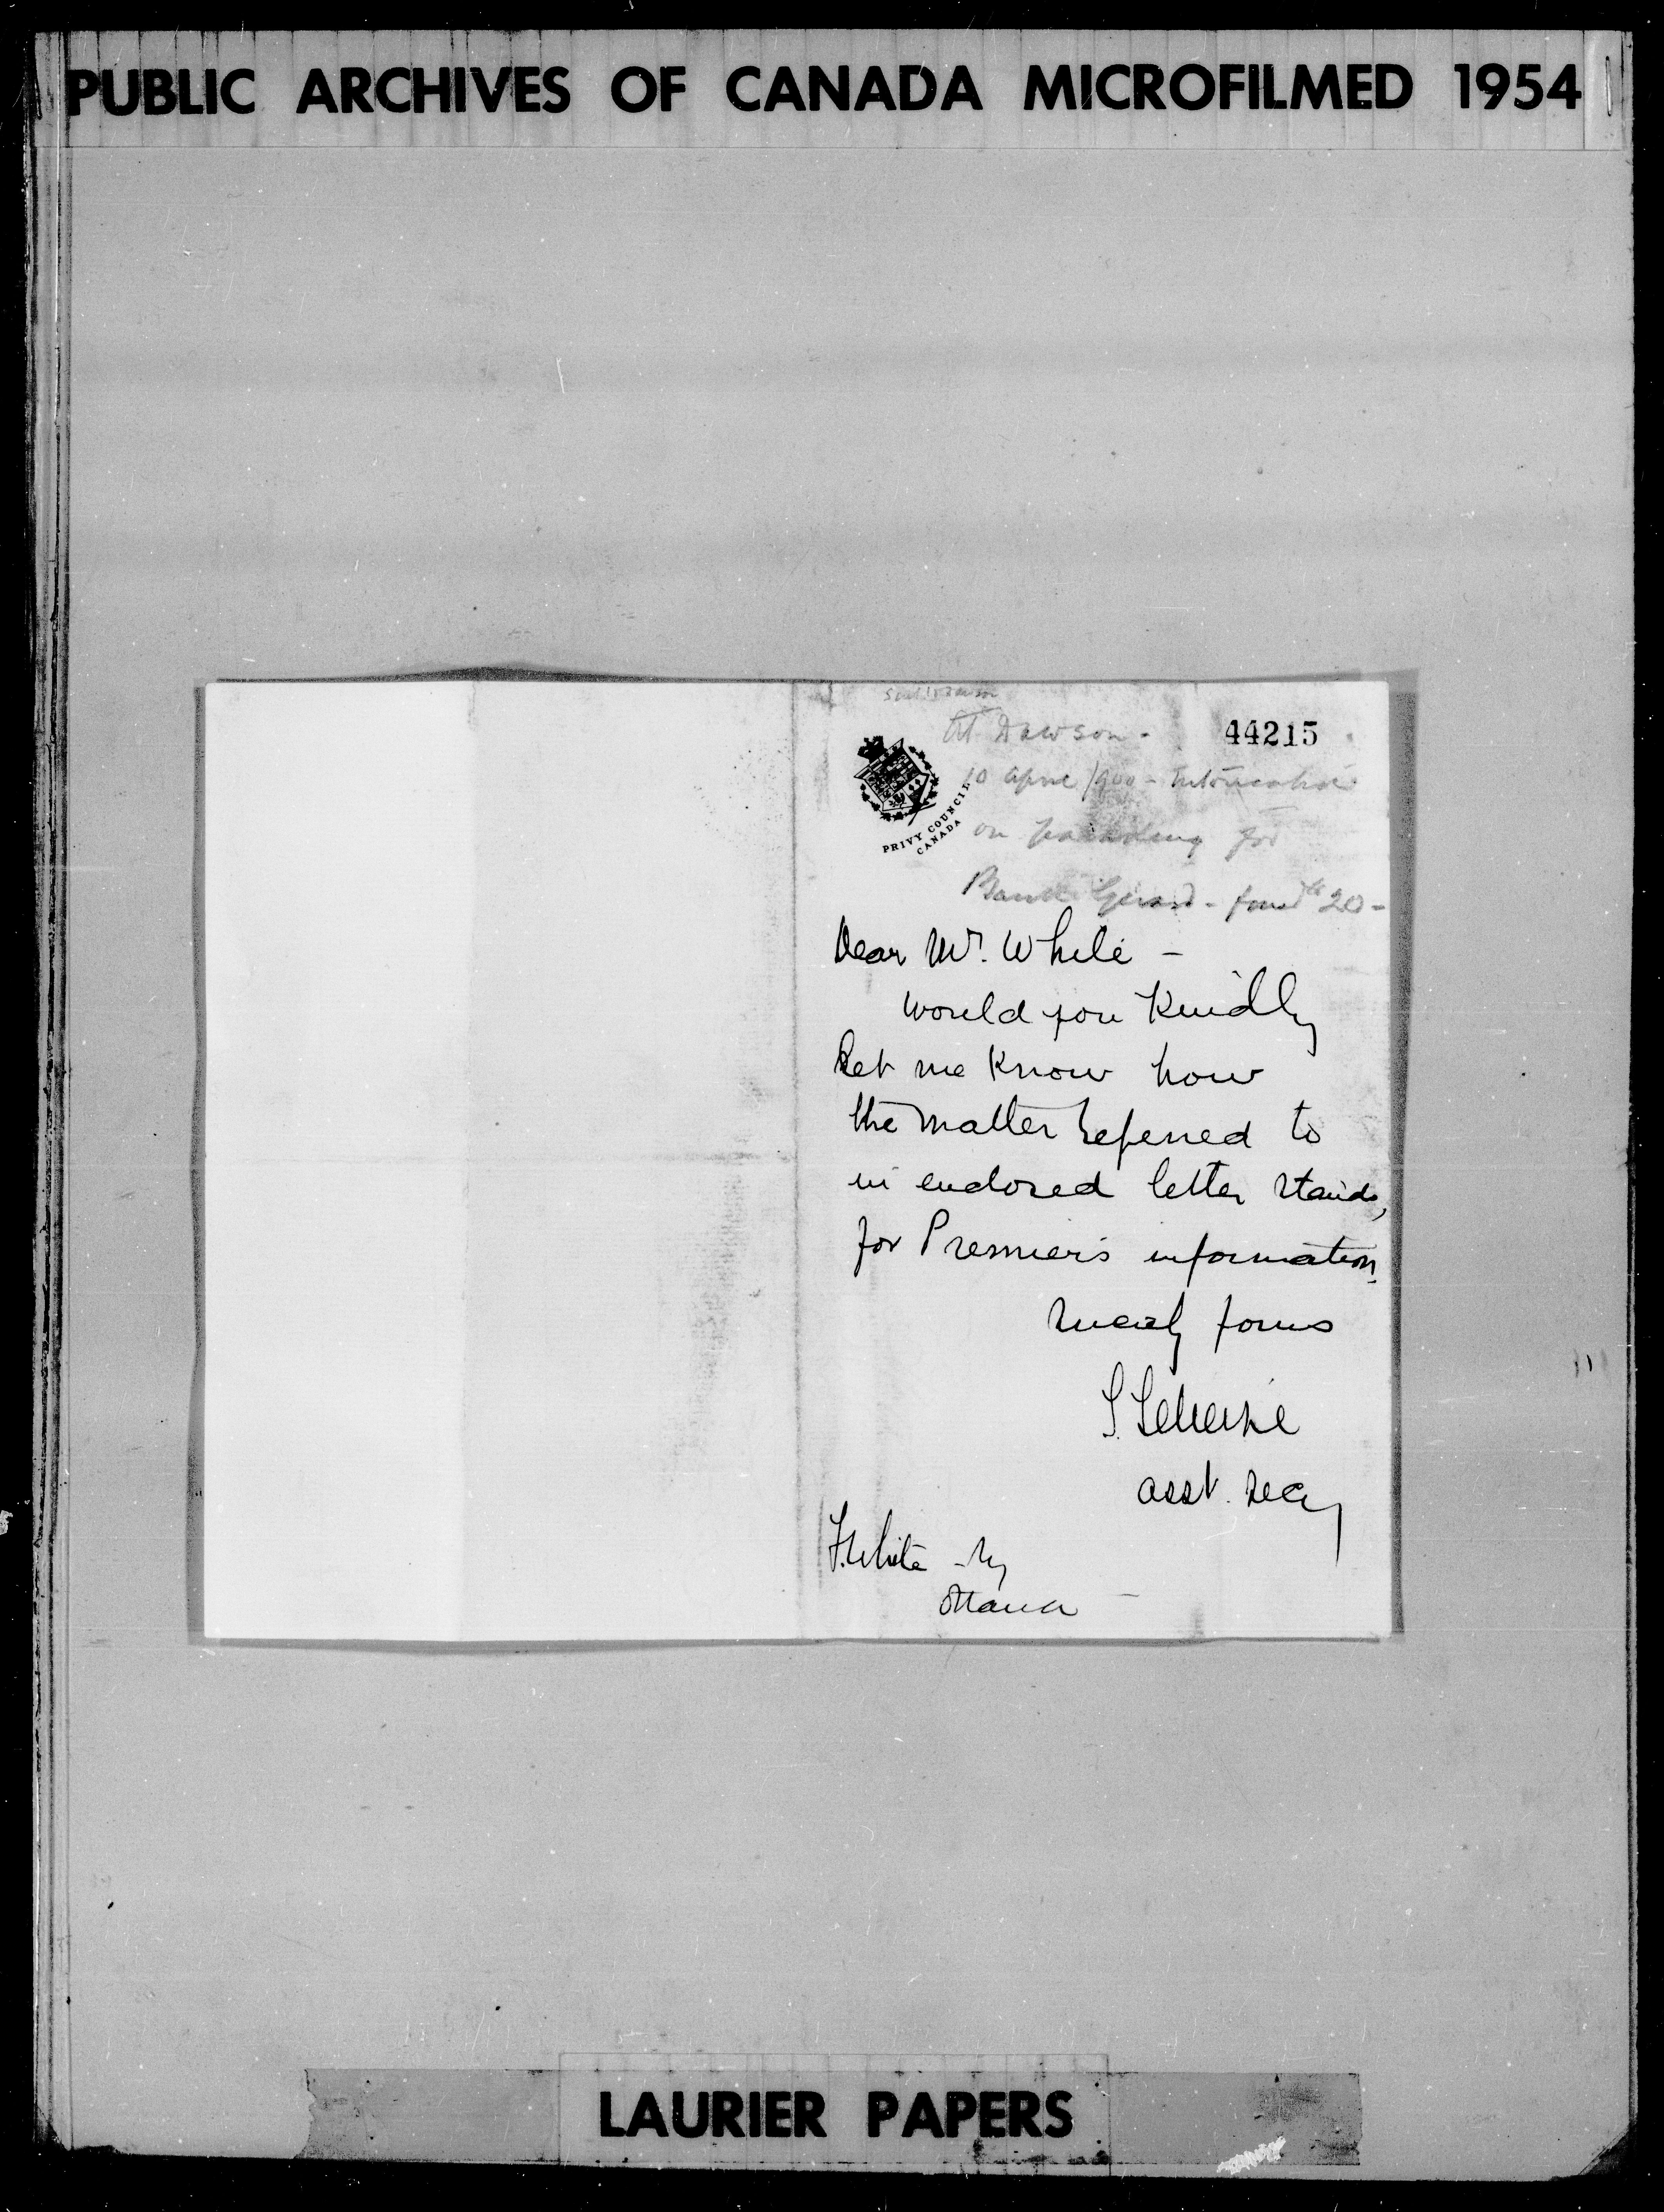 PUBLIC ARCHIVES OF CANADA MICROFILMED 1954
At Dawson -
44215
10 April/900 - Intoxication
on parading for
Bank Guard - fined 20 -
PRIVY COUNCIL
CANADA
Dear Mr. White -
would you kindly
let me know how
the matter referred to
in enclosed letter stands,
for Premier's information.
yours
S.
asst. secy
F. White
Ottawa -
LAURIER PAPERS